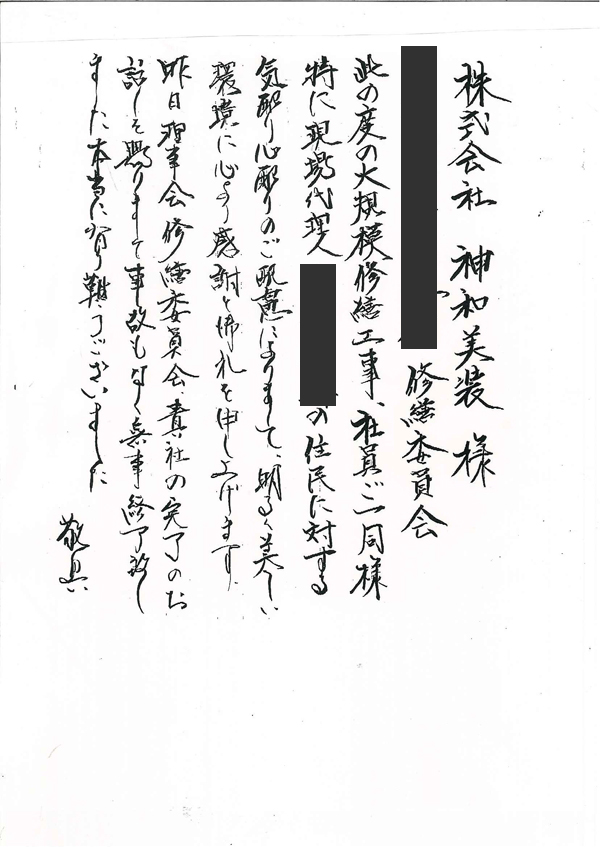 株式会社 神和美装 様
修繕委員会
此の度の大規模修繕工事、社員ご一同様
特に現場代理人 の住民に対する
気配り心配りのご配慮によりまして、明るく美しい
環境に心より感謝と御礼を申し上げます
昨日理事会修繕委員会、貴社の完了のお
話しを賜りまして事故もなく無事終了致し
ました本当に有り難うございました
敬具